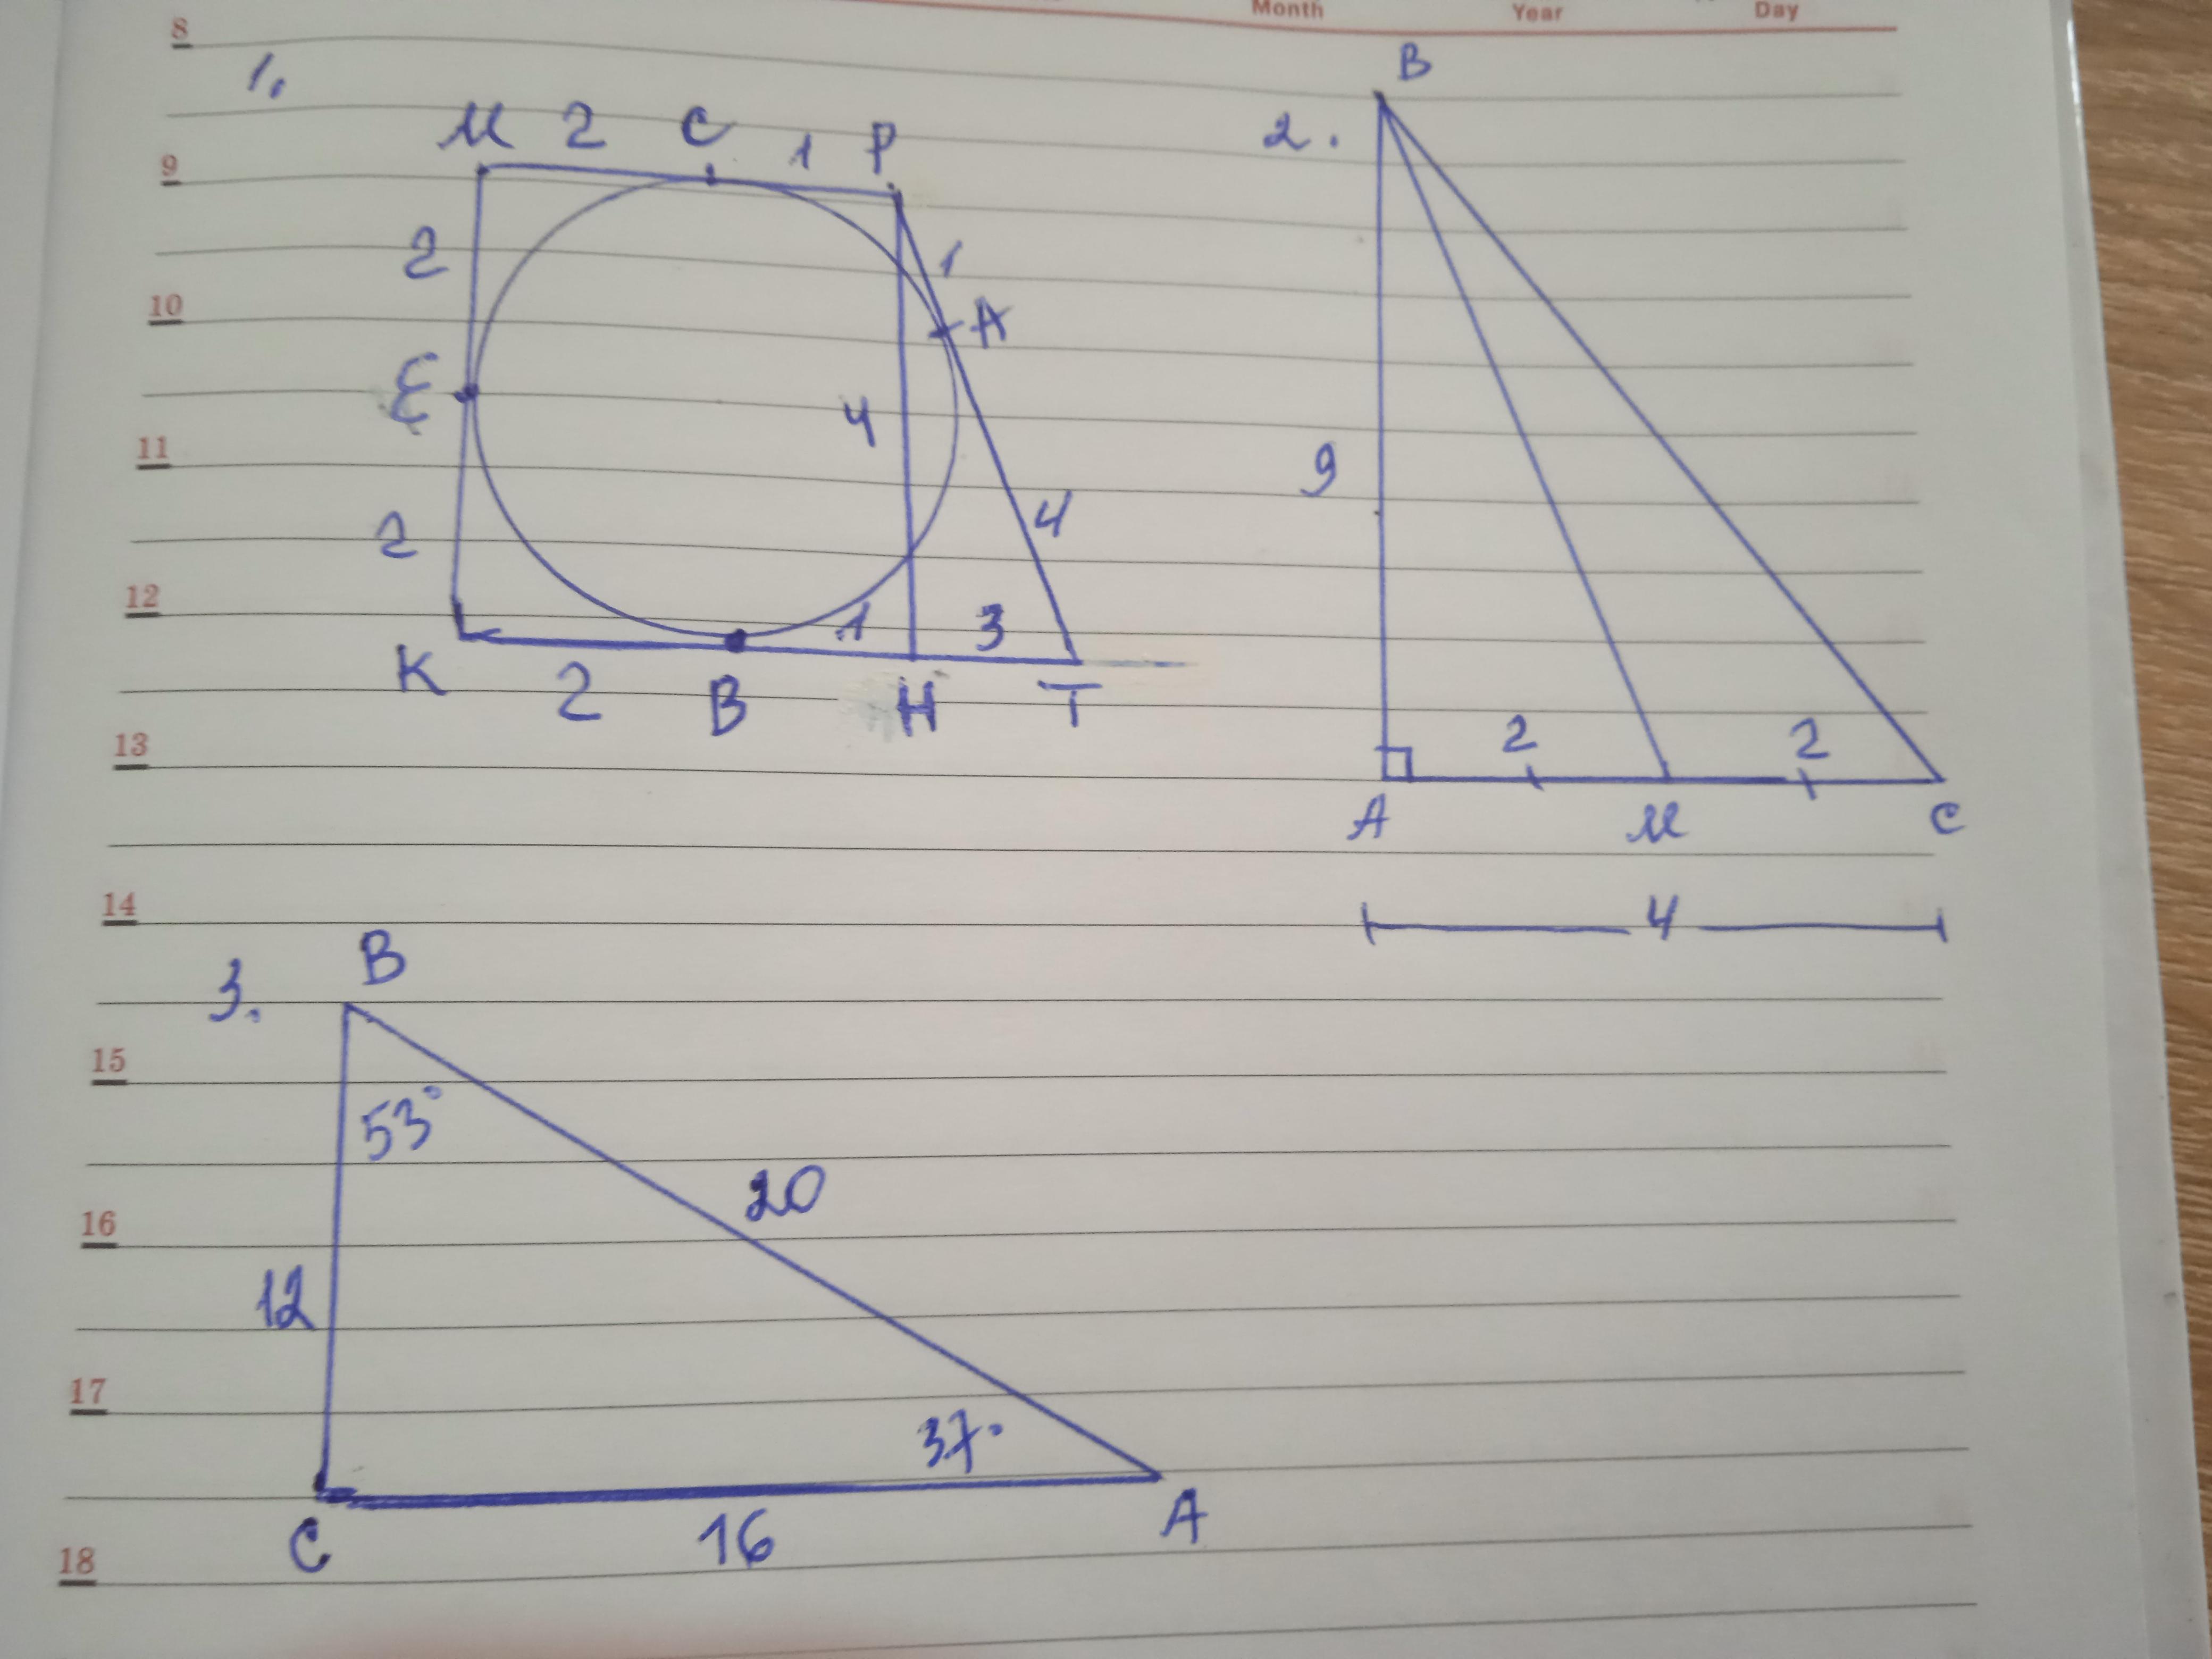 Month Year Day
8
1.
М 2 С 1 Р
9
2
1
10
А
Е
4
11
4
2
12
1 3
К 2 В Н Т
13
В
2.
9
2 2
А М С
4
14
3. В
15
53°
20
16
12
17
37°
С 16 А
18